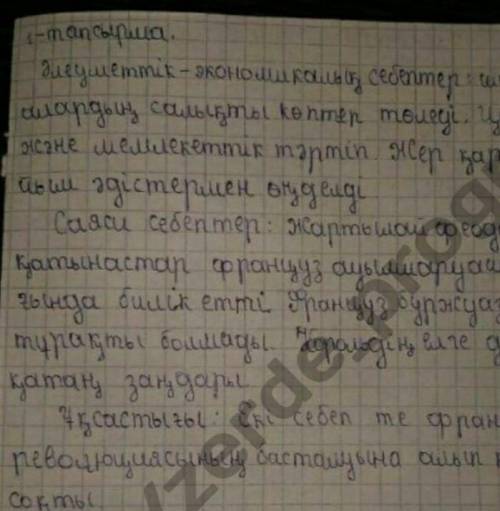 1-тапсырма.
Әлеуметтік-экономикалық себептер: ш
алардың салықты көптеп төледі. Ц
және мемлекеттік тәртіп. Жер қар
айыш әдістермен өңделді
Саяси себептер: Жартылай феод
қатынастар француз ауылшаруаш
ғында билік етті. Француз буржуаз
тұрақты болмады. Корольдің елге д
қатаң заңдары
Ұқсастығы: Екі себеп те фран
революциясының басталуына алып к
соқты.
/zerde_prog